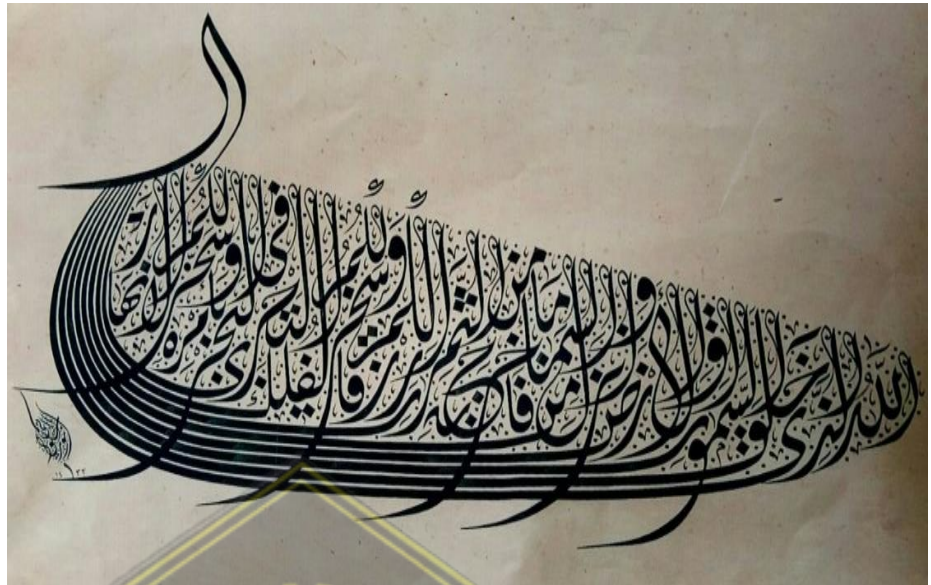 الله الذي خلق السموات والأرض وأنزل من السماء ماء فأخرج به من الثمرات رزقا لكم وسخر لكم الفلك لتجري في البحر بأمره وسخر لكم الأنهار